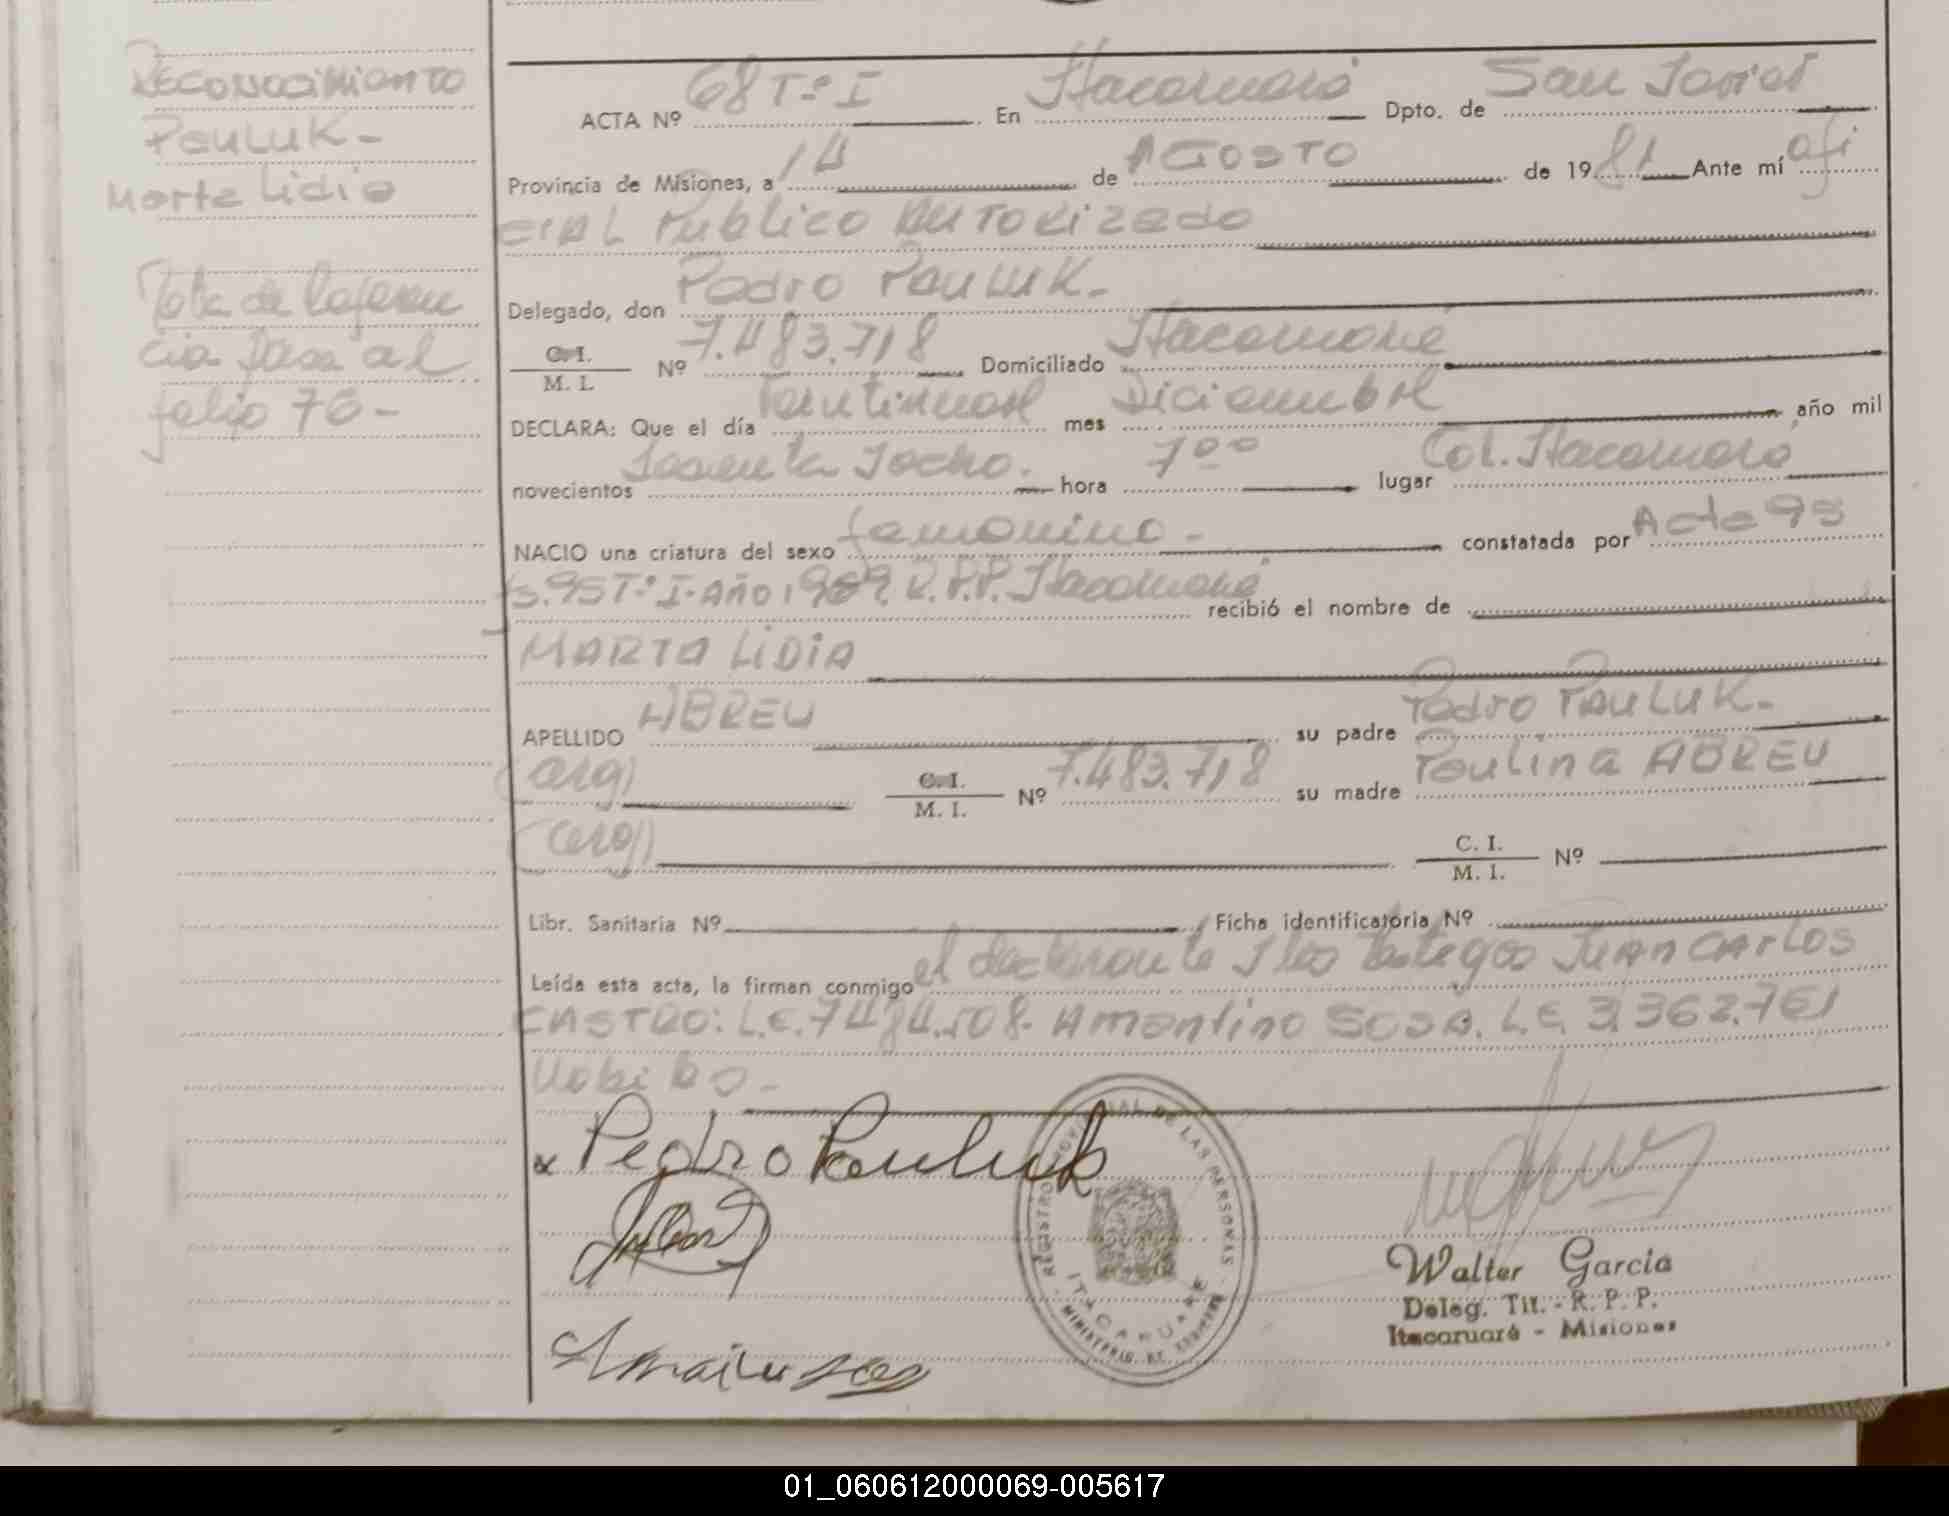 Reconocimiento
Pauluk-
Marta Lidia
Nota de
al
folio 76-
ACTA Nº 68 Tº I En Itacaruaré Dpto. de San Javier
Provincia de Misiones, a 14 de AGOSTO de 1981 Ante mí ofi
CIAL Publico AUTORizado
Delegado, don Pedro Pauluk.-
C. I.
M. I. Nº 7.483.718 Domiciliado Itacaruaré
DECLARA: Que el día mes Diciembre año mil
novecientos hora 7ºº lugar Col. Itacaruaré
NACIO una criatura del sexo femenino- constatada por Acta 95
Tº I. Año R.P.P. Itacaruaré recibió el nombre de
MARTA LiDiA
APELLIDO ABREU su padre Pedro PAULUK-
(arg) C. I.
M. I. Nº 7.483.718 su madre Paulina ABREU
(arg) C. I.
M. I. Nº
Libr. Sanitaria Nº Ficha identificatoria Nº
Leída esta acta, la firman conmigo el declarante y los testigos JUAN CARLOS
CASTRO: L.E. 7484.508- Amantino SOSA. L.E. 3.362.761
Habiles-
x Pedro Pauluk
REGISTRO PROVINCIAL DE LAS PERSONAS
ITACARUARE
MINISTERIO DE GOBIERNO
Walter Garcia
Deleg. Tit. - R. P. P.
Itacaruaré - Misiones
01_060612000069-005617